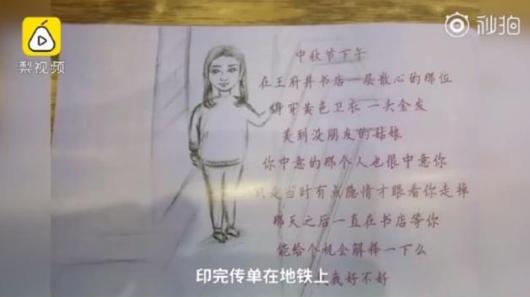 梨视频
秒拍
中秋节下午
在王府井书店一层散心的那位
穿黄色卫衣 一头金发
美到没朋友的姑娘
你中意的那个人也很中意你
只是当时有点隐情才眼看你走掉
那天之后一直在书店等你
能给个机会解释一下么
我好不好
印完传单在地铁上